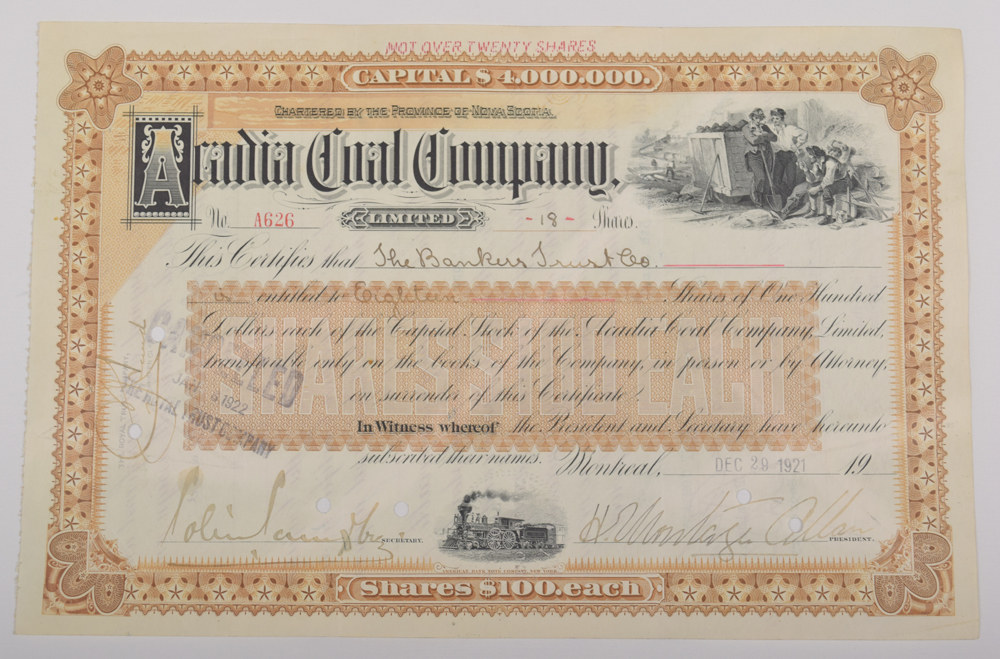 NOT OVER TWENTY SHARES
CAPITAL $4,000,000.
CHARTERED BY THE PROVINCE OF NOVA SCOTIA.
Acadia Coal Company,
LIMITED
No. A626 - 18 - Shares.
This Certifies that The Bankers Trust Co.
is entitled to Eighteen Shares of One Hundred
Dollars each of the Capital Stock of the Acadia Coal Company, Limited,
transferable only on the books of the Company, in person or by Attorney,
on surrender of this Certificate.
SHARES $100 EACH
In Witness whereof the President and Secretary have hereunto
subscribed their names. Montreal, DEC 29 1921 19
CANCELLED
1922
TRUST COMPANY
SECRETARY.
PRESIDENT.
AMERICAN BANK NOTE COMPANY, NEW YORK.
Shares $100. each